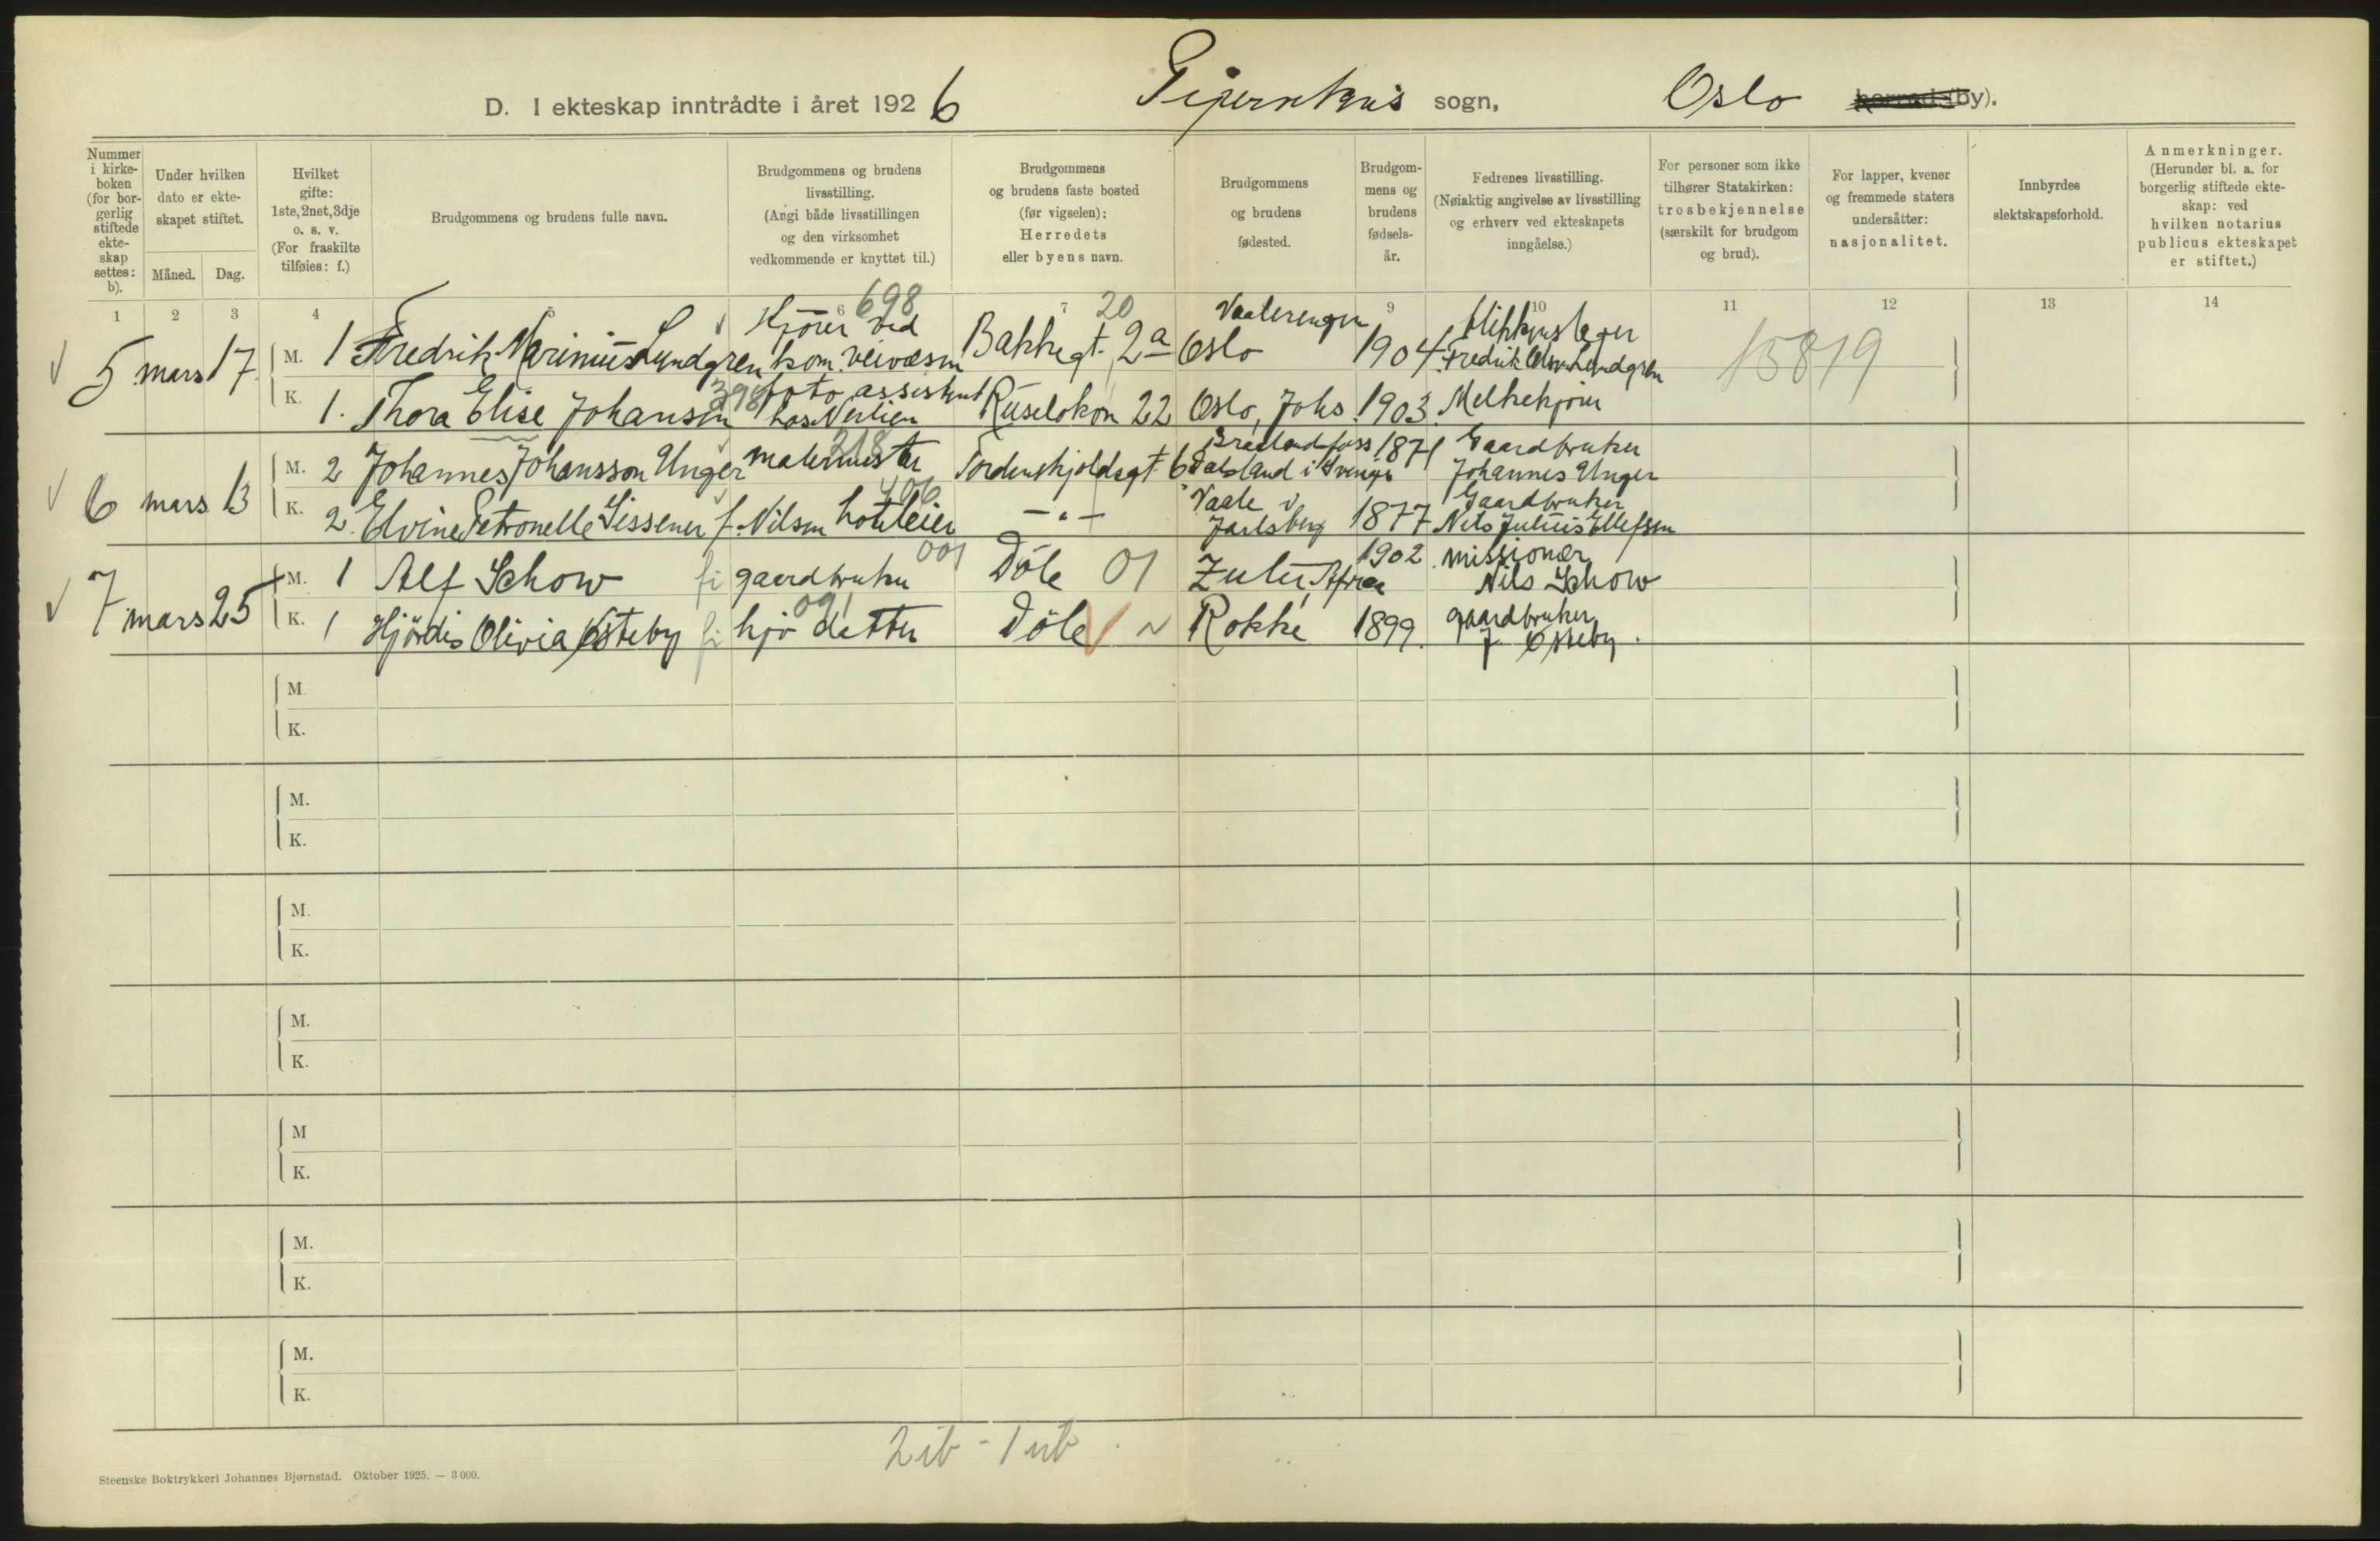 D. I ekteskap inntrådte i året 1926 sogn, Oslo herred (by).
Nummer i kirke-boken (for bor-gerlig stiftede ekte-skap settes: b).
Under hvilken dato er ekte-skapet stiftet.
Måned. Dag.
Hvilket gifte: 1ste, 2net, 3dje o. s. v. (For fraskilte tilføies: f.)
Brudgommens og brudens fulle navn.
Brudgommens og brudens livsstilling. (Angi både livsstillingen og den virksomhet vedkommende er knyttet til.)
Brudgommens og brudens faste bosted (før vigselen): Herredets eller byens navn.
Brudgommens og brudens fødested.
Brudgom-mens og brudens fødsels-år.
Fedrenes livsstilling. (Nøiaktig angivelse av livsstilling og erhverv ved ekteskapets inngåelse.)
For personer som ikke tilhører Statskirken: trosbekjennelse (særskilt for brudgom og brud).
For lapper, kvener og fremmede staters undersåtter: nasjonalitet.
Innbyrdes slektskapsforhold.
Anmerkninger. (Herunder bl. a. for borgerlig stiftede ekte-skap: ved hvilken notarius publicus ekteskapet er stiftet.)
1 2 3 4 5 6 7 9 10 11 12 13 14
698 20
5 mars 17 M. 1 Fredrik Marinius Lundgren Kjörer ved kom. veivæsen Bakkegt. 2a Vaalerengen Oslo 1904 blikkenslager Fredrik Lundgren 15819
K. 1. Thora Elise Johansen 398 foto assistent hos Ruselökvn 22 Oslo, Johs. 1903. Melkekjörer
6 mars 13 M. 2 Johannes Johansson Unger malermester 218 Tordenskjoldsgt 6 Dalsland i Sverige 1871 Gaardbruker Johannes Unger
K. 2. Elvine Petronelle Sissener f. Nilsen hoteleier 406 — " — Vaale i Jarlsberg 1877 Gaardbruker Nils Julius Ellefsen
7 mars 25 M. 1 Alf Schow fi gaardbruker 001 Döle 01 Zulu, Afrca 1902 missionær Nils Schow
K. 1 Hjördis Olivia Østeby fi hjo detter 091 Döle Rokke 1899. gaardbruker J. Østeby.
M.
K.
M.
K.
M.
K.
M.
K.
M
K.
M.
K.
M.
K.
2 ib - 1 ub
Steenske Boktrykkeri Johannes Bjørnstad. Oktober 1925. — 3 000.